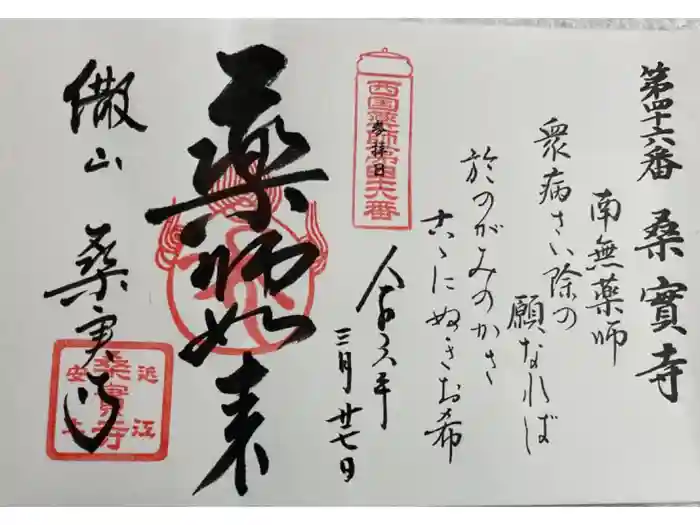 第四十六番 桑實寺
南無薬師
衆病さい除の
願なれば
於のがみのかさ
こゝにぬきお希
西国薬師第四十六番
参拝日
令和六年
三月廿七日
薬師如来
繖山 桑実寺
近江
桑實寺
安土